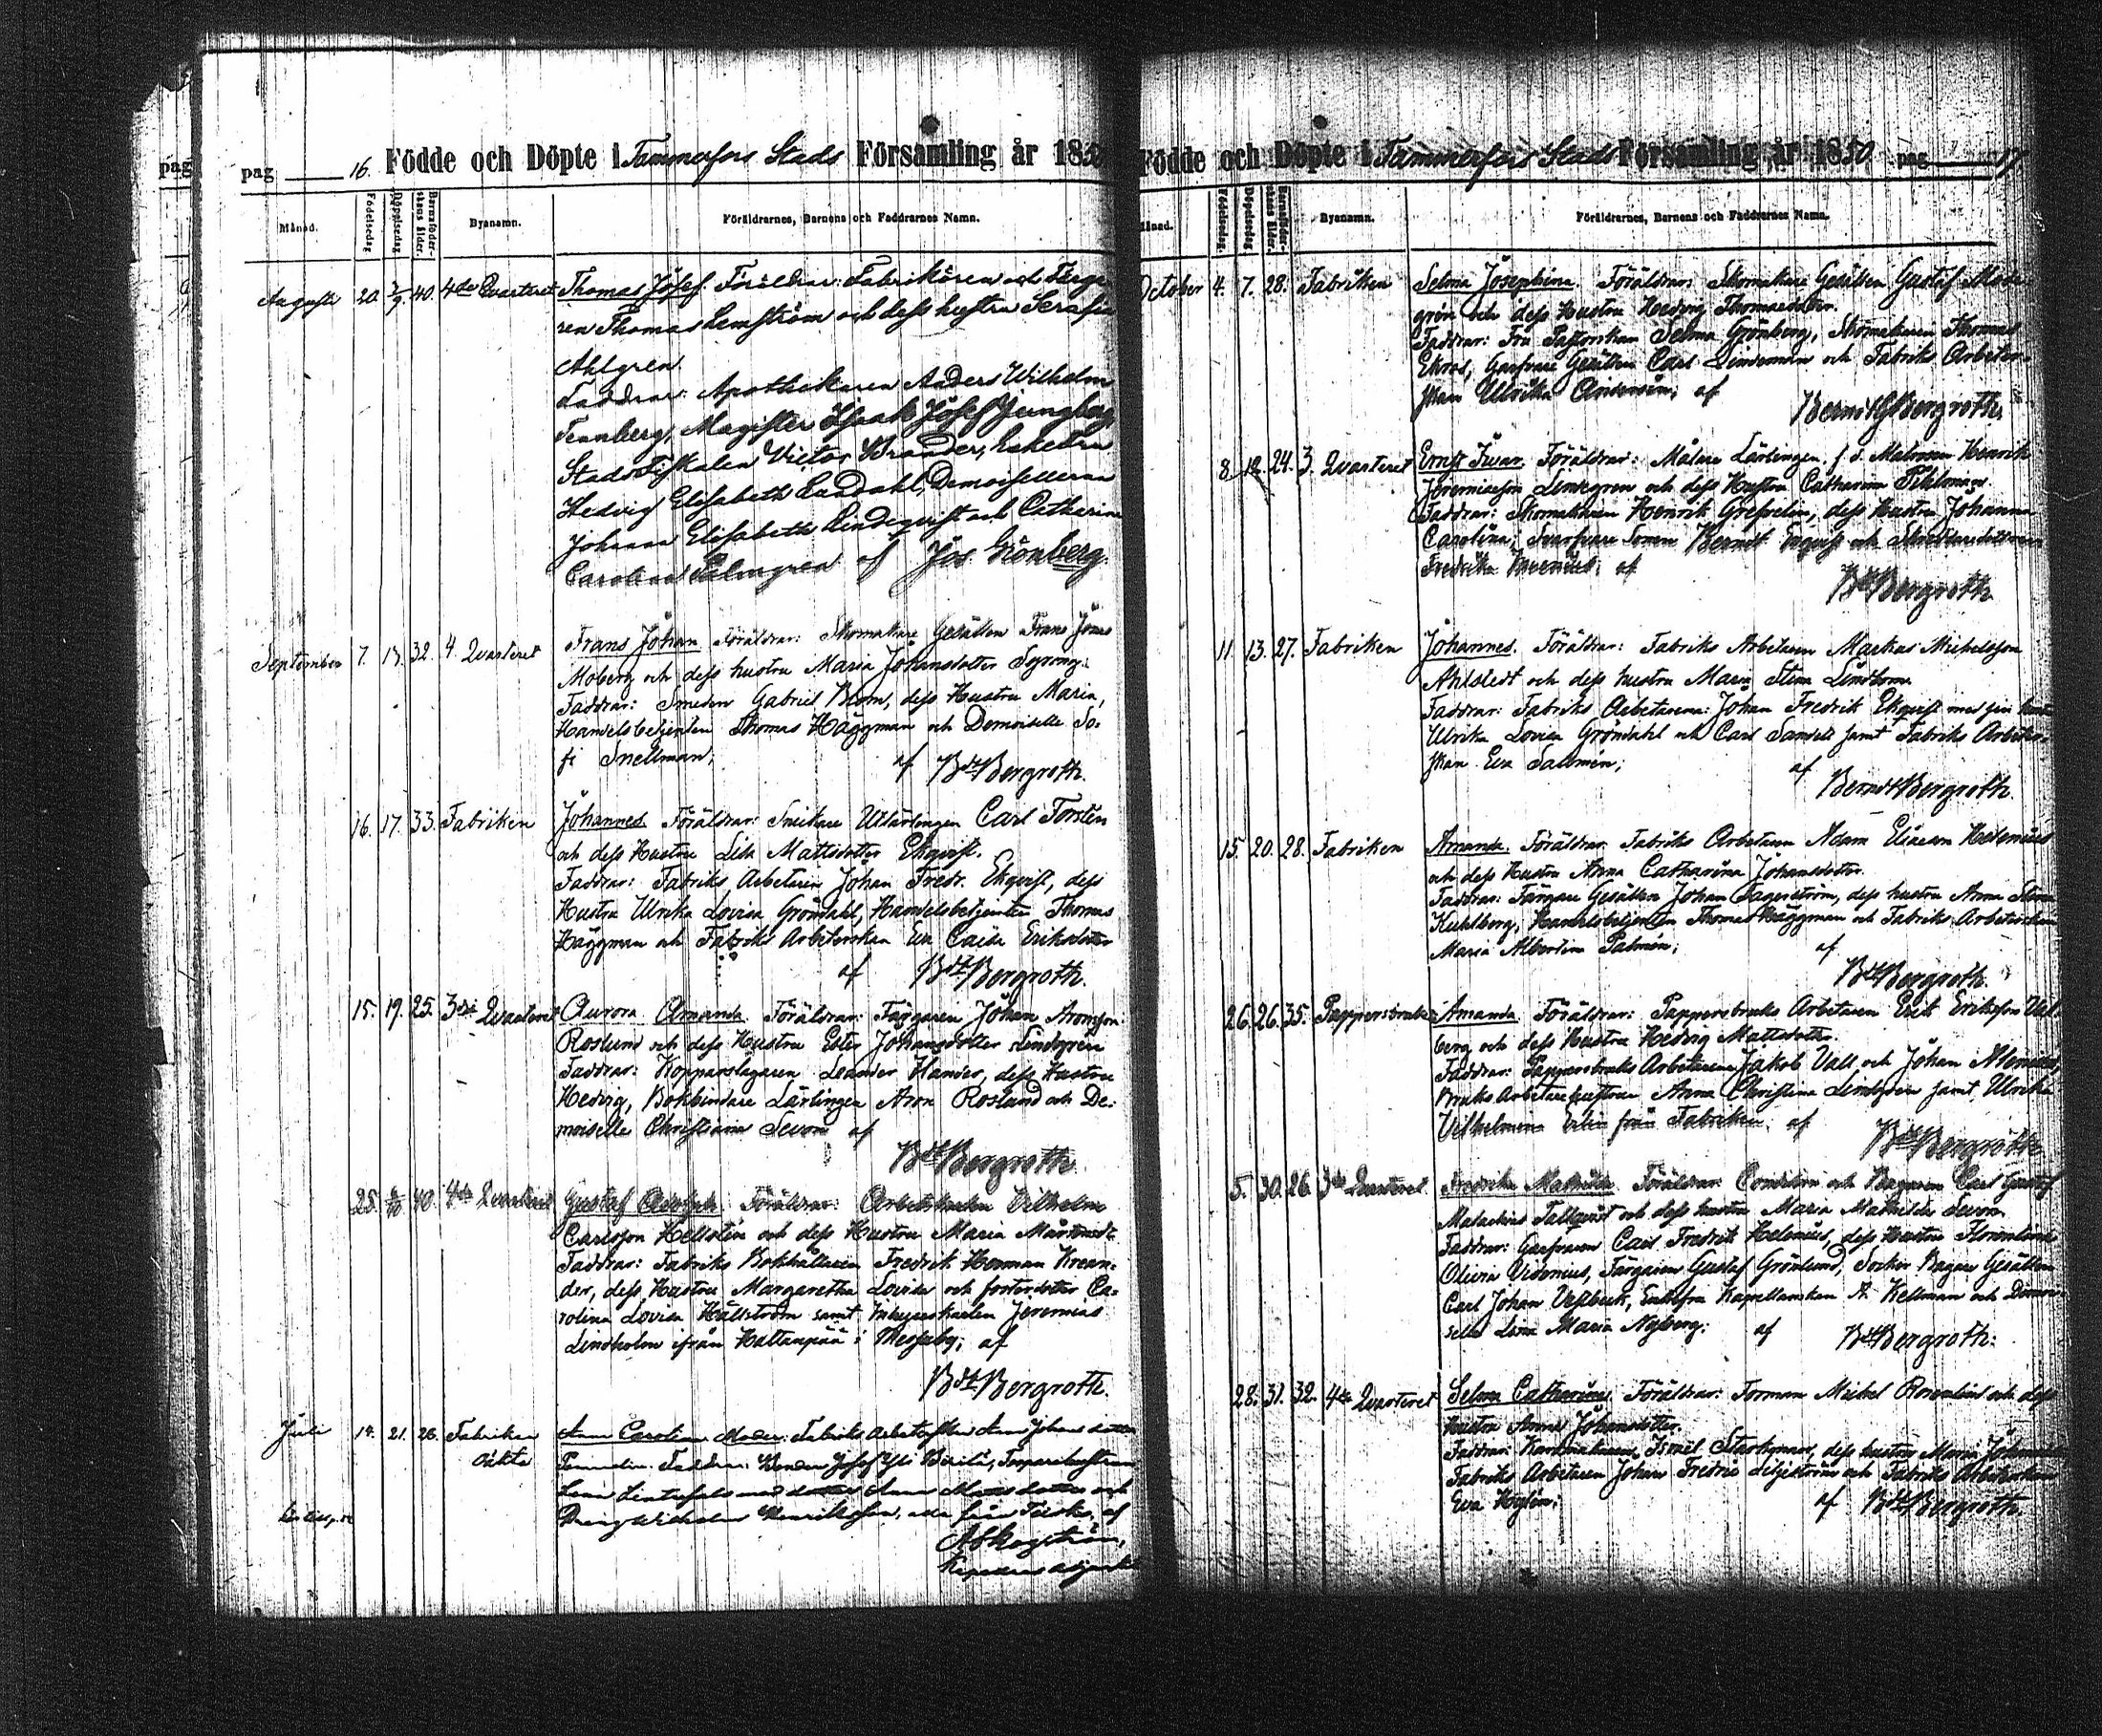 pag
pag 16. Födde och Döpte i Tammerfors Stads Församling år 1850
Månad. Födelsedag Döpelsedag Barnaföder-skans ålder. Byanamn. Föräldrarnes, Barnens och Faddrarnes Namn.
Augusti 20. 2/9. 40. 4de Qvarteret Thomas Josef. Föräldrar: Fabrikören och Färga-
ren Thomas Lemström och dess hustru Serafia
Ahlgren
Faddrar: Apothekaren Anders Wilhelm
Tennberg, Magister Isaak Josef Ljungberg,
Stads Fiskalen Victor Brander, Enkefru
Hedvig Elisabeth Lundahl, Demoisellerna
Johanna Elisabeth Lindeqvist och Catharina
Carolina Palmgren af Jos. Grönberg.
September 7. 13. 32. 4. Qvarteret Frans Johan Föräldrar: Skomakare Gesällen Frans Jonas
Moberg och dess hustru Maria Johansdotter
Faddrar: Smeden Gabriel Blom, dess Hustru Maria,
Handelsbetjenten Thomas Häggman och Demoiselle So-
fi Snellman; af Bdt Bergroth.
16. 17. 33. Fabriken Johannes. Föräldrar: Snickare Utlärlingen Carl Torstén
och dess Hustru Lisa Mattsdotter Ekqvist.
Faddrar: Fabriks Arbetaren Johan Fredr. Ekqvist, dess
Hustru Ulrika Lovisa Gröndahl, Handelsbetjenten Thomas
Häggman och Fabriks Arbeterskan Eva Caisa Eriksdotter
af Bdt Bergroth.
15. 19. 25. 3dje Qvarteret Aurora Amanda. Föräldrar: Färgaren Johan Aronsson
Roslund och dess Hustru Ester Johansdotter Lindgren
Faddrar: Kopparslagaren Leander Hander, dess Hustru
Hedvig, Bokbindare Lärlingen Aron Roslund och De-
moiselle Christiana Sevon af
Bdt Bergroth
25. 6/10 40. 4de Qvarteret Gustaf Adolph. Föräldrar: Arbetskarlen Vilhelm
Carlsson Hellstén och dess Hustru Maria Mårtensdr
Faddrar: Fabriks Bokhållaren Fredrik Herman Krean-
der, dess Hustru Margaretha Lovisa och fosterdotter Ca-
rolina Lovisa Hällström samt Inhyseskarlen Jeremias
Lindholm ifrån Hattanpää i Messuby; af
Bdt Bergroth.
Juli 14. 21. 26. Fabriken Anna Carolina. Moder: Fabriks Arbeterskan Anna Johansdotter
oäkta Faddrar: Bonden Josef Yli Torparehustrun
Lena med dotter Anna Matsdotter och
Dräng Wilhelm Henriksson, alla från af
A Skogström,
adjunkt
Födde och Döpte i Tammerfors Stads Församling år 1850. pag 17.
Månad. Födelsedag. Döpelsedag Barnaföder-skans ålder. Byanamn. Föräldrarnes, Barnens och Faddrarnes Namn.
October 4. 7. 28. Fabriken Selma Josephina Föräldrar: Skomakare Gesällen Gustaf Mode-
grén och dess Hustru Hedvig Thomasdotter.
Faddrar: Fru Pastorskan Selma Grönberg, Skomakaren Thomas
Ekroos, Garfvare Gesällen Carl Lindeman och Fabriks Arbeter-
skan Ulrika Andersén; af
Berndt Bergroth.
8. 12. 24. 3. Qvarteret Ernst Ivar. Föräldrar: Målare Lärlingen f. d. Matrosen Henrik
Jeremiasson Lindegren och dess Hustru Catharina
Faddrar: Skomakaren Henrik Grefvelin, dess Hustru Johanna
Carolina; Svarfvare Sonen Berndt och Skräddaredottren
Fredrika af
Bdt Bergroth
11. 13. 27. Fabriken Johannes. Föräldrar: Fabriks Arbetaren Markus Michelsson
Ahlstedt och dess hustru Maria Stina Lindbom
Faddrar: Fabriks Arbetarena: Johan Fredrik Ekqvist med sin hustru
Ulrika Lovisa Gröndahl och Carl Sandell samt Fabriks Arbeter-
skan Eva Salmén; af
Berndt Bergroth.
15. 20. 28. Fabriken Amanda. Föräldrar: Fabriks Arbetaren Adam Eliasson Helenius
och dess Hustru Anna Catharina Johansdotter.
Faddrar: Färgare Gesällen Johan Fagerström, dess hustru Anna Stina
Kuhlberg, Handelsbetjenten Thomas Häggman och Fabriks Arbeterskan
Maria Albertina Palmén; af
Bdt Bergroth.
26. 26. 35. Pappersbruket Amanda. Föräldrar: Pappersbruks Arbetaren Erik Eriksson Val-
berg och dess Hustru Hedvig Mattsdotter.
Faddrar: Pappersbruks Arbetarena Jakob Vall och Johan Alenius,
Bruks Arbetarehustrun Anna Christina Lindgren samt Ulrika
Vilhelmina från Fabriken; af
Bdt Bergroth
5. 30. 26. 3dje Qvarteret Fredrika Mathilda Föräldrar: Conditorn och Bagaren Carl Gustaf
Malachias Tallqvist och dess hustru Maria Mathilda Sevon
Faddrar: Garfvaren Carl Fredrik Helenius, dess Hustru Florentina
Olivia Färgaren Gustaf Grönlund, Socker Bagare Gesällen
Carl Johan Kapellanskan A. Kellman och Demoi-
selle Lina Maria Nyberg: af Bdt Bergroth:
28. 31. 32. 4de Qvarteret Selma Catharina Föräldrar: Formann Michel Rosenlind och dess
hustru Anna Johansdotter.
Faddrar: Ismael Starkman, dess hustru Maria
Fabriks Arbetaren Johan Fredric Liljeström och Fabriks Arbeterskan
Eva Hyln; af Bdt Bergroth.